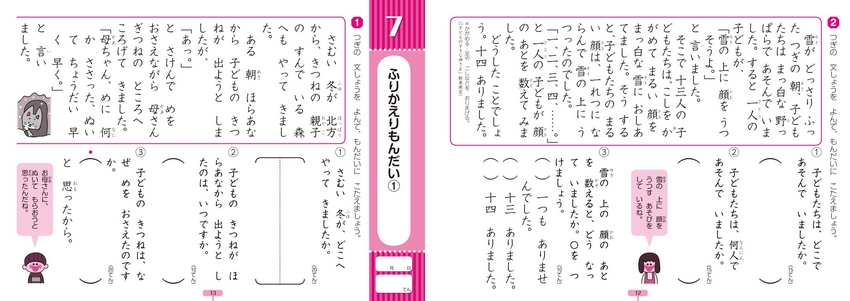 7
ふりかえりもんだい①
月 日
てん
1
つぎの 文しょうを よんで、もんだいに こたえましょう。
さむい 冬が 北方
から、きつねの 親子
の すんで いる 森
へも やって きまし
た。
ある 朝 ほらあな
から 子どもの きつ
ねが 出ようと しま
したが、
「あっ。」
と さけんで めを
おさえながら 母さん
ぎつねの ところへ
ころげて きました。
「母ちゃん、めに 何
か ささった、ぬい
て ちょうだい 早
く 早く。」
と 言い
ました。
① さむい 冬が、どこへ
やって きましたか。
(20てん)
② 子どもの きつねが ほ
らあなから 出ようと し
たのは、いつですか。
(15てん)
③ 子どもの きつねは、な
ぜ めを おさえたのです
か。
(20てん)
と 思ったから。
お母さんに、
ぬいて もらおうと
思ったんだね。
13
2
つぎの 文しょうを よんで、もんだいに こたえましょう。
雪が どっさり ふっ
た つぎの 朝、子ども
たちは まっ白な 野っ
ぱらで あそんで いま
した。すると 一人の
子どもが、
「雪の 上に 顔を うつ
そうよ。」
と 言いました。
そこで 十三人の 子
どもたちは、こしを か
がめて まるい 顔を
まっ白な 雪に おしあ
てました。そう する
と、子どもたちの まる
い 顔は、一れつに な
らんで 雪の 上に う
つったのでした。
「一、二、三、四、……。」
と 一人の 子どもが 顔
の あとを 数えて みま
した。
どうした ことでしょ
う。十四 ありました。
① 子どもたちは、どこで
あそんで いましたか。
(15てん)
② 子どもたちは、何人で
あそんで いましたか。
(15てん)
③ 雪の 上の 顔の あと
を 数えると、どう なっ
て いましたか。○を つ
けましょう。
(15てん)
( )一つも ありませ
んでした。
( )十三 ありました。
( )十四 ありました。
雪の 上に 顔を
うつす あそびを
して いるね。
12